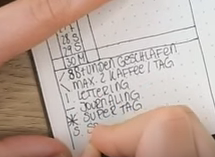 28 F
29 S
30 M
/ 8 STUNDEN GESCHLAFEN
\ MAX. 2 KAFFEE / TAG
! LETTERING
. JOURNALING
* SUPER TAG
S